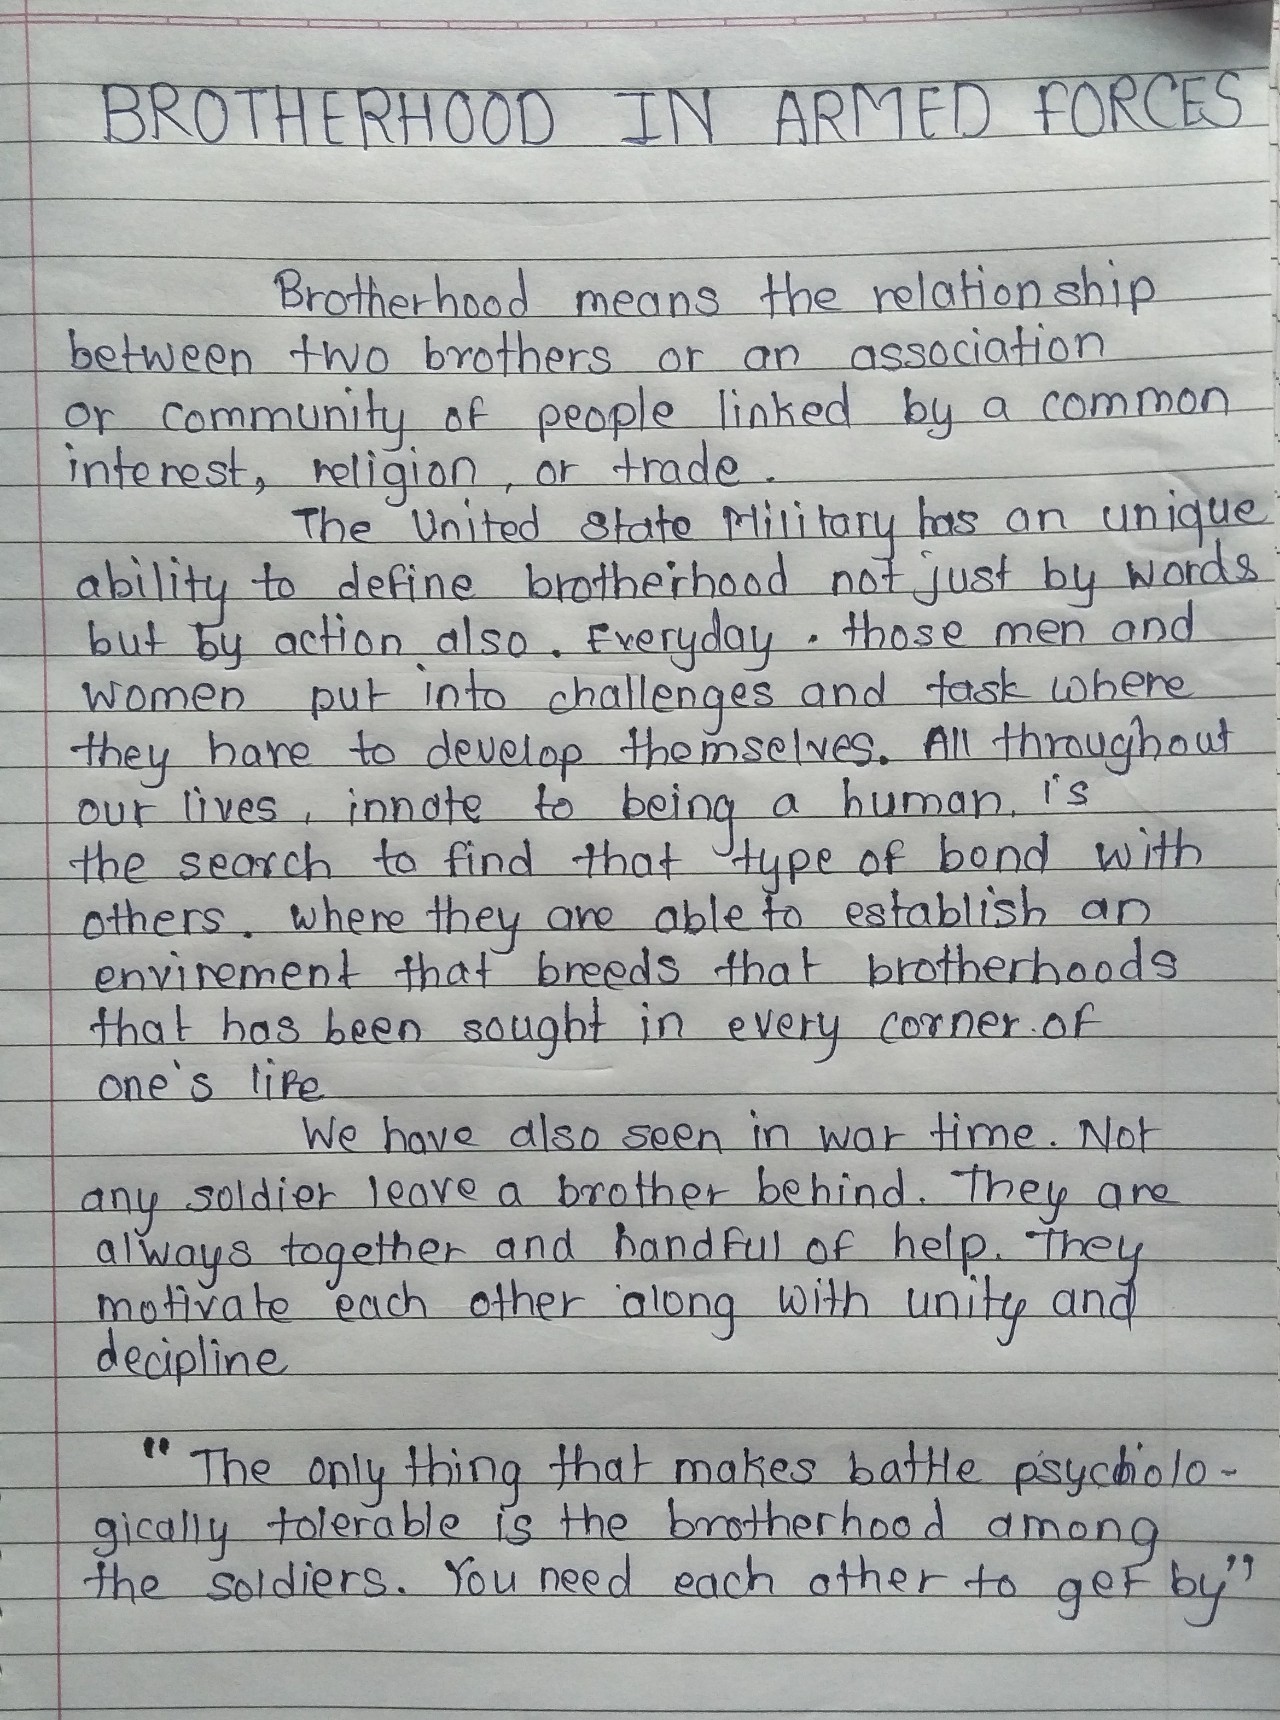 BROTHERHOOD IN ARMED FORCES
Brotherhood means the relationship
between two brothers or an association
or community of people linked by a common
interest, religion, or trade.
The United State Military has an unique
ability to define brotherhood not just by words
but by action also. Everyday. those men and
women put into challenges and task where
they have to develop themselves. All throughout
our lives, innate to being a human, is
the search to find that type of bond with
others. where they are able to establish an
envirement that breeds that brotherhoods
that has been sought in every corner.of
one's life
We have also seen in war time. Not
any soldier leave a brother behind. They are
always together and handful of help. They
motivate each other along with unity and
decipline
"The only thing that makes battle psycholo-
gically tolerable is the brotherhood among
the soldiers. You need each other to get by"